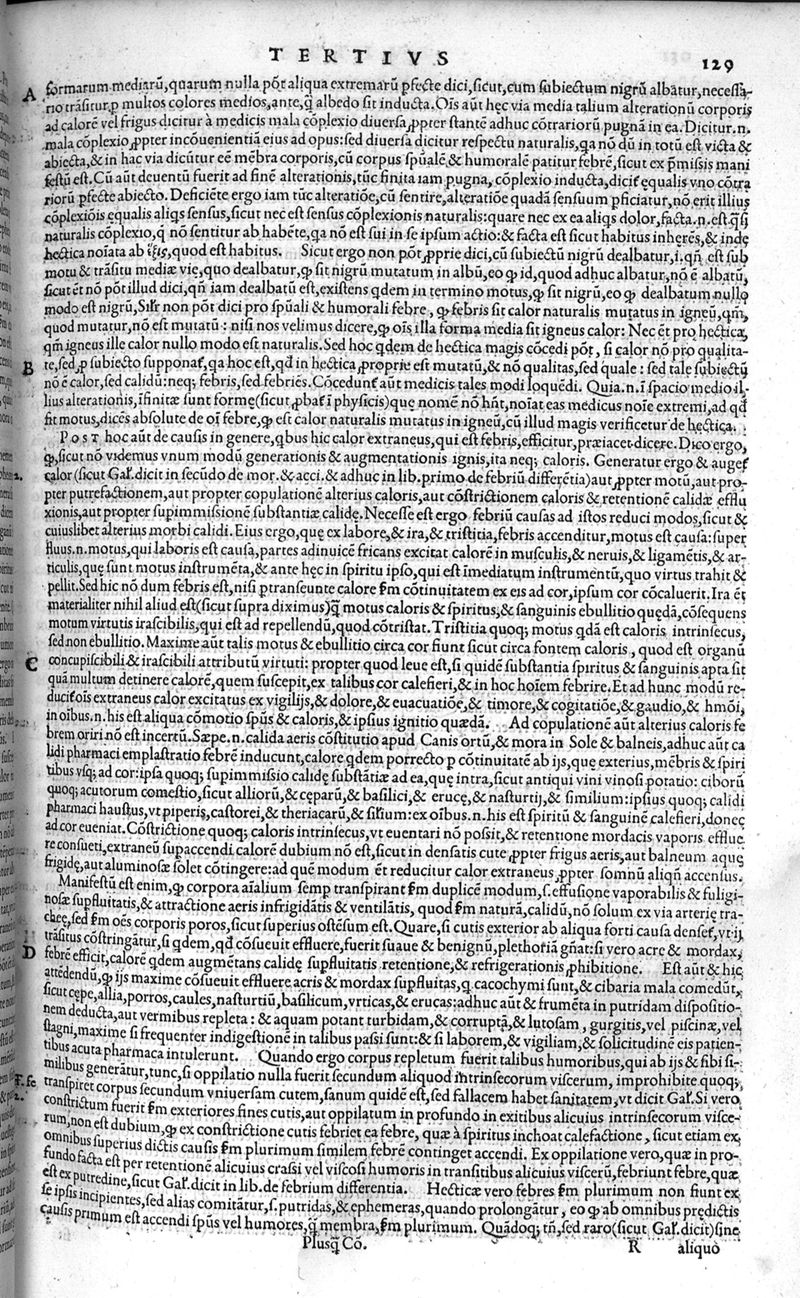 TERTIVS
129
A formarum mediarũ, quarum nulla põt aliqua extremarũ pfecte dici, sicut, cum subiectum nigrũ albatur, necessa-
rio trãsitur, p multos colores medios, ante, q̃ albedo sit inducta. Oĩs aũt hęc via media talium alterationũ corporis
ad calorẽ vel frigus dicitur à medicis mala cõplexio diuersa, ppter stantẽ adhuc cõtrariorũ pugnã in ea. Dicitur .n.
mala cõplexio, ppter incõuenientiã eius ad opus: sed diuersa dicitur respectu naturalis, qa nõ dũ in totũ est victa &
abiecta, & in hac via dicũtur eẽ mẽbra corporis, cũ corpus spũalẽ & humoralẽ patitur febrẽ, sicut ex pmissis mani
festũ est. Cũ aũt deuentũ fuerit ad finẽ alterationis, tũc finita iam pugna, cõplexio inducta, dicit᷑ ęqualis vno cõtra
riorũ pfecte abiecto. Deficiẽte ergo iam tũc alteratiõe, cũ sentire, alteratiõe quadã sensuum pficiatur, nõ erit illius
cõplexiõis ęqualis aliqs sensus, sicut nec est sensus cõplexionis naturalis: quare nec ex ea aliqs dolor, facta .n. est q̃si
naturalis cõplexio, q̃ nõ sentitur ab habẽte, qa nõ est sui in se ipsum actio: & facta est sicut habitus inherẽs, & inde
hectica noĩata ab ἕξις, quod est habitus. Sicut ergo non põt, pprie dici, cũ subiectũ nigrũ dealbatur, i. qñ est sub
motu & trãsitu mediæ vię, quo dealbatur, ꝙ sit nigrũ mutatum in albũ, eo ꝙ id, quod adhuc albatur, nõ ẽ albatũ,
sicut ẽt nõ põt illud dici, qñ iam dealbatũ est, existens qdem in termino motus, ꝙ sit nigrũ, eo ꝙ dealbatum nullo
modo est nigrũ, Silr non põt dici pro spũali & humorali febre, ꝙ febris sit calor naturalis mutatus in igneũ, qm̃,
quod mutatur, nõ est mutatũ: nisi nos velimus dicere, ꝙ oĩs illa forma media sit igneus calor: Nec ẽt pro hectica,
qm̃ igneus ille calor nullo modo est naturalis. Sed hoc qdem de hectica magis cõcedi põt, si calor nõ pro qualita-
B te, sed, p subiecto supponat᷑, qa hoc est, qd in hectica, proprie est mutatũ, & nõ qualitas, sed quale: sed tale subiectũ
nõ ẽ calor, sed calidũ: neq; febris, sed febriẽs. Cõcedunt᷑ aũt medicis tales modi loquẽdi. Quia .n. ĩ spacio medio il-
lius alterationis, ĩfinitæ sunt formę (sicut, pbat᷑ ĩ physicis) quę nomẽ nõ hñt, noĩat eas medicus noĩe extremi, ad qd
fit motus, dicẽs absolute de oĩ febre, ꝙ est calor naturalis mutatus in igneũ, cũ illud magis verificetur de hectica.
POST hoc aũt de causis in genere, qbus hic calor extraneus, qui est febris, efficitur, præiacet dicere. Dico ergo,
ꝙ, sicut nõ videmus vnum modũ generationis & augmentationis ignis, ita neq; caloris. Generatur ergo & auget᷑
calor (sicut Gal. dicit in secũdo de mor. & acci. & adhuc in lib. primo de febriũ differẽtia) aut, ppter motũ, aut pro-
pter putrefactionem, aut propter copulationẽ alterius caloris, aut cõstrictionem caloris & retentionẽ calidæ efflu
xionis, aut propter supimmissionẽ substantiæ calidę. Necesse est ergo febriũ causas ad istos reduci modos, sicut &
cuiuslibet alterius morbi calidi. Eius ergo, quę ex labore, & ira, & tristitia, febris accenditur, motus est causa: super
fluus .n. motus, qui laboris est causa, partes adinuicẽ fricans excitat calorẽ in musculis, & neruis, & ligamẽtis, & ar-
ticulis, quę sunt motus instrumẽta, & ante hęc in spiritu ipso, qui est ĩmediatum instrumentũ, quo virtus trahit &
pellit. Sed hic nõ dum febris est, nisi ptranseunte calore fm cõtinuitatem ex eis ad cor, ipsum cor cõcaluerit. Ira ẽt
materialiter nihil aliud est (sicut supra diximus) q̃ motus caloris & spiritus, & sanguinis ebullitio quędã, cõsequens
motum virtutis irascibilis, qui est ad repellendũ, quod cõtristat. Tristitia quoq; motus qdã est caloris intrinsecus,
sed non ebullitio. Maxime aũt talis motus & ebullitio circa cor fiunt sicut circa fontem caloris, quod est organũ
C concupiscibili & irascibili attributũ virtuti: propter quod leue est, si quidẽ substantia spiritus & sanguinis apta sit
quã multum detinere calorẽ, quem suscepit, ex talibus cor calefieri, & in hoc hoĩem febrire. Et ad hunc modũ re-
ducit᷑ oĩs extraneus calor excitatus ex vigilijs, & dolore, & euacuatiõe, & timore, & cogitatiõe, & gaudio, & hmõi,
in oĩbus .n. his est aliqua cõmotio spũs & caloris, & ipsius ignitio quædã. Ad copulationẽ aũt alterius caloris fe
brem oriri nõ est incertũ. Sæpe .n. calida aeris cõstitutio apud Canis ortũ, & mora in Sole & balneis, adhuc aũt ca
lidi pharmaci emplastratio febrẽ inducunt, calore qdem porrecto p cõtinuitatẽ ab ijs, quę exterius, mẽbris & spiri
tibus vsq; ad cor: ipsa quoq; supimmissio calidę substãtiæ ad ea, quę intra, sicut antiqui vini vinosi potatio: ciborũ
quoq; acutorum comestio, sicut alliorũ, & cęparũ, & basilici, & erucę, & nasturtij, & similium: ipsius quoq; calidi
pharmaci haustus, vt piperis, castorei, & theriacarũ, & silium: ex oĩbus .n. his est spiritũ & sanguinẽ calefieri, donec
ad cor eueniat. Cõstrictione quoq; caloris intrinsecus, vt euentari nõ possit, & retentione mordacis vaporis efflue
re consueti, extraneũ supaccendi calorẽ dubium nõ est, sicut in densatis cute, ppter frigus aeris, aut balneum aquę
frigidę, aut aluminosæ solet cõtingere: ad quẽ modum ẽt reducitur calor extraneus, ppter somnũ aliqñ accensus.
Manifestũ est enim, ꝙ corpora aĩalium semp transpirant fm duplicẽ modum, s. effusione vaporabilis & fuligi-
nosæ supfluitatis, & attractione aeris infrigidãtis & ventilãtis, quod fm naturã, calidũ, nõ solum ex via arterię tra-
chęę, sed fm oẽs corporis poros, sicut superius ostẽsum est. Quare, si cutis exterior ab aliqua forti causa denset᷑, vt ij
D trãsitus cõstringãtur, si qdem, qd cõsueuit effluere, fuerit suaue & benignũ, plethoriã gñat: si vero acre & mordax,
febrẽ efficit, calorẽ qdem augmẽtans calidę supfluitatis retentione, & refrigerationis, phibitione. Est aũt & hic
attẽdendũ, ꝙ ijs maxime cõsueuit effluere acris & mordax supfluitas, q cacochymi sunt, & cibaria mala comedũt,
sicut cępe, allia, porros, caules, nasturtiũ, basilicum, vrticas, & erucas: adhuc aũt & frumẽta in putridam dispositio-
nem deducta, aut vermibus repleta: & aquam potant turbidam, & corruptã, & lutosam, gurgitis, vel piscinæ, vel
stagni, maxime si frequenter indigestionẽ in talibus passi sunt: & si laborem, & vigiliam, & solicitudinẽ eis patien-
tibus acuta pharmaca intulerunt. Quando ergo corpus repletum fuerit talibus humoribus, qui ab ijs & sibi si-
milibus generatur, tunc, si oppilatio nulla fuerit secundum aliquod intrinsecorum viscerum, improhibite quoq;
transpiret corpus secundum vniuersam cutem, sanum quidẽ est, sed fallacem habet sanitatem, vt dicit Gal. Si vero
constrictum fuerit fm exteriores fines cutis, aut oppilatum in profundo in exitibus alicuius intrinsecorum visce-
rum, non est dubium, ꝙ ex constrictione cutis febriet ea febre, quæ à spiritus inchoat calefactione, sicut etiam ex
omnibus superius dictis causis fm plurimum similem febrẽ continget accendi. Ex oppilatione vero, quæ in pro-
fundo facta est per retentionẽ alicuius crassi vel viscosi humoris in transitibus alicuius viscerũ, febriunt febre, quæ
est ex putredine, sicut Gal. dicit in lib. de febrium differentia. Hecticæ vero febres fm plurimum non fiunt ex
se ipsis incipientes, sed alias comitãtur, s. putridas, & ephemeras, quando prolongãtur, eo ꝙ ab omnibus prędictis
causis primum est accendi spũs vel humores, q̃ membra, fm plurimum. Quãdoq; tñ, sed raro (sicut Gal. dicit) sine
Plusq̃ Cõ. R aliquo